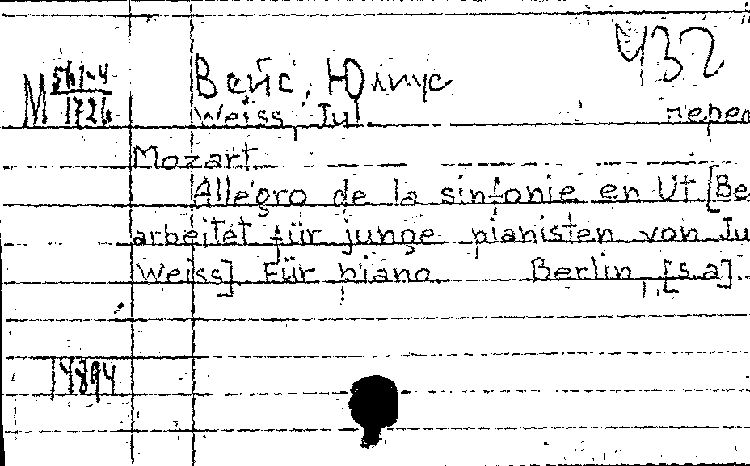 432
М 561-4
1726
Вейс, Юлиус
Weiss, Jul. перел
Mozart.
Allegro de la sinfonie en Ut [Be
arbeitet für junge pianisten von Ju
Weiss]. Für piano. Berlin, [s.a].
14894